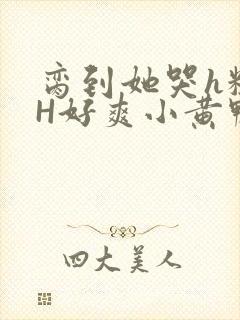 脔到她哭h
H好爽小黄
四大美人